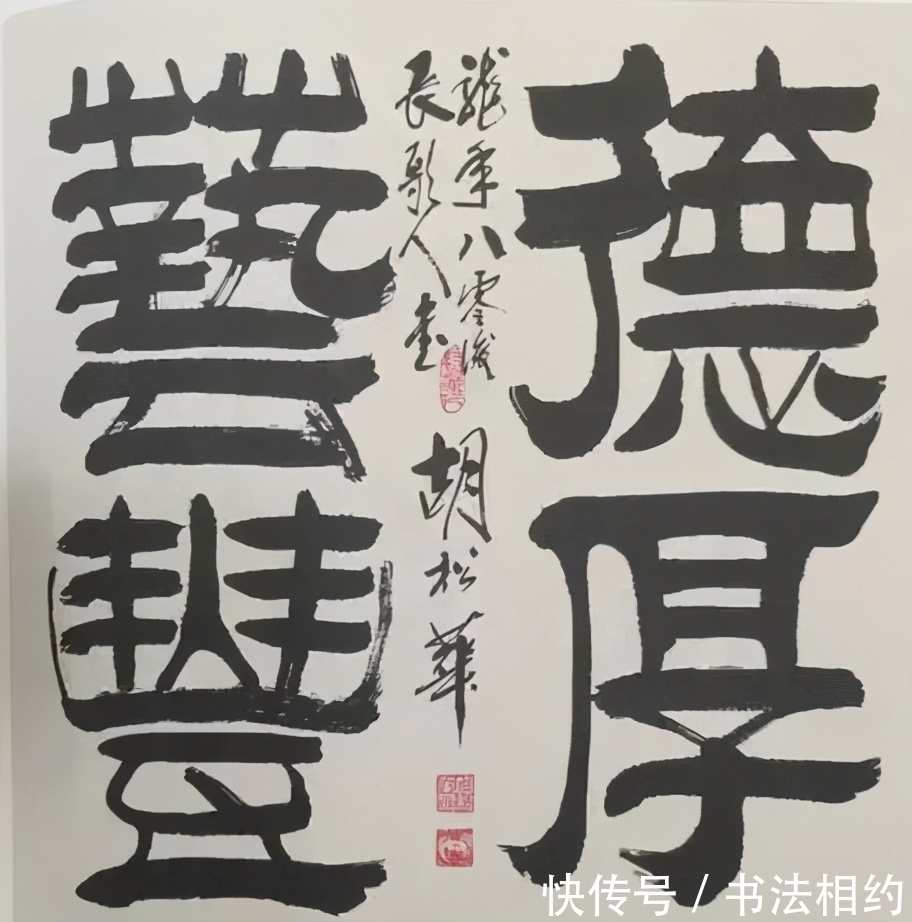 德厚
藝豐
龍年八零後
長歌人
胡松華
快传号 / 书法相约